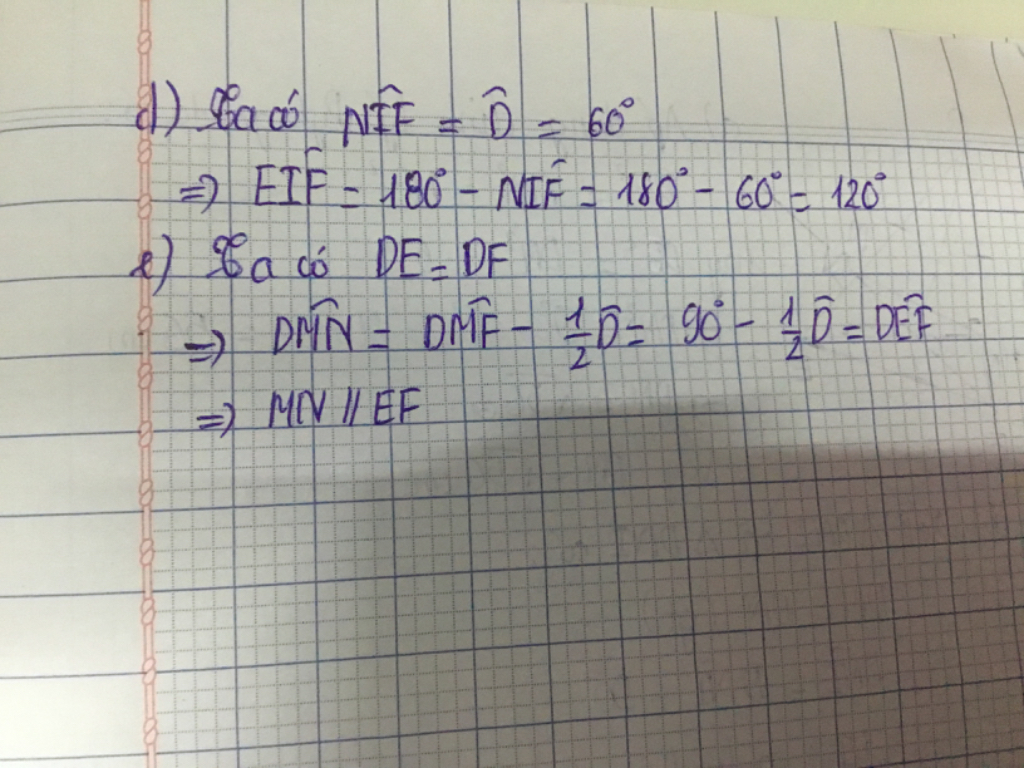 d) Ta có NÎF = D̂ = 60°
=> EIF̂ = 180° - NIF̂ = 180° - 60° = 120°
e) Ta có DE = DF
=> DM̂N = DM̂F - 1/2 D̂ = 90° - 1/2 D̂ = DÊF
=> MN // EF